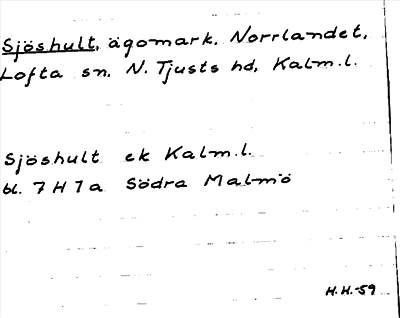 Sjöshult, ägomark. Norrlandet,
Lofta sn, N. Tjusts hd, Kalm.l.
Sjöshult ek Kalm.l.
bl. 7 H 7 a Södra Malmö
H.H.-59